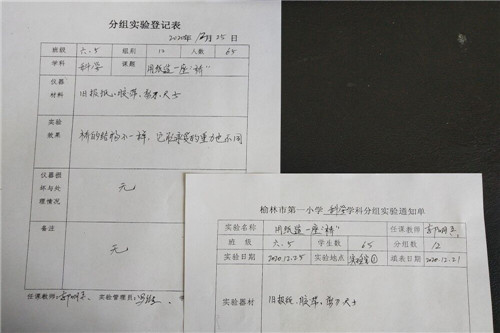 分组实验登记表
2020年 12月 25日
班级 六.5 组别 12 人数 65
学科 科学 课题 用纸造一座"桥"
仪器材料 旧报纸、胶带、剪刀、尺子
实验效果 桥的结构不一样，它能承受的重力也不同
仪器损坏与处理情况 无
备注 无
任课教师: 实验管理员:
榆林市第一小学 科学 学科分组实验通知单
实验名称 用纸造一座"桥" 任课教师
班 级 六.5 学生数 65 分组数 12
实验日期 2020.12.25 实验地点 实验室① 填表日期 2020.12.21
实验器材 旧报纸、胶带、剪刀、尺子